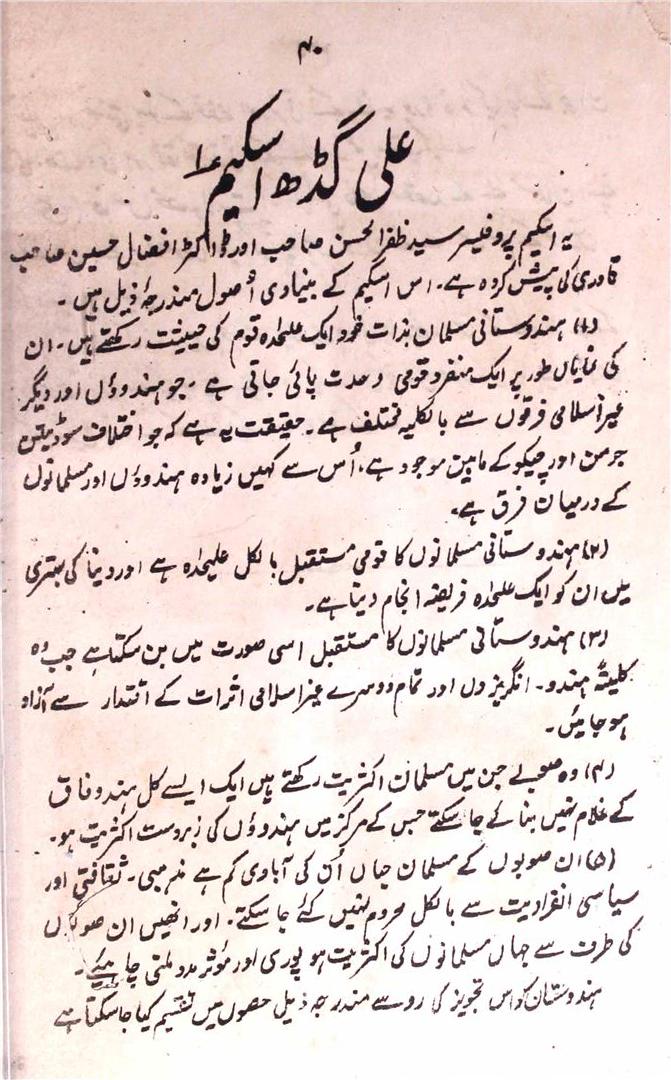 ۴۰
علی گڈھ اسکیم ۱؎
یہ اسکیم پروفیسر سید ظفر الحسن صاحب اور ڈاکٹر افضال حسین صاحب
قادری کی پیش کردہ ہے۔ اس اسکیم کے بنیادی اُصول مندرجۂ ذیل ہیں۔
(۱) ہندوستانی مسلمان بذات خود ایک علیٰحدہ قوم کی حیثیت رکھتے ہیں۔ ان
کی نمایاں طور پر ایک منفرد قومی وحدت پائی جاتی ہے۔ جو ہندوؤں اور دیگر
غیر اسلامی فرقوں سے بالکلیہ مختلف ہے۔ حقیقت یہ ہے کہ جو اختلاف سوڈیٹن
جرمن اور چیکو کے مابین موجود ہے، اُس سے کہیں زیادہ ہندوؤں اور مسلمانوں
کے درمیان فرق ہے۔
(۲) ہندوستانی مسلمانوں کا قومی مستقبل بالکل علیحدہ ہے اور دنیا کی بہتری
میں ان کو ایک علیحدہ فریضہ انجام دینا ہے۔
(۳) ہندوستانی مسلمانوں کا مستقبل اسی صورت میں بن سکتا ہے جب وہ
کلیتہً ہندو۔ انگریزوں اور تمام دوسرے غیر اسلامی اثرات کے اقتدار سے آزاد
ہو جائیں۔
(۴) وہ صوبے جن میں مسلمان اکثریت رکھتے ہیں ایک ایسے کل ہند وفاق
کے غلام نہیں بنائے جا سکتے جس کے مرکز میں ہندوؤں کی زبردست اکثریت ہو۔
(۵) ان صوبوں کے مسلمان جہاں اُن کی آبادی کم ہے مذہبی۔ ثقافتی اور
سیاسی انفرادیت سے بالکل محروم نہیں کئے جا سکتے۔ اور انھیں ان صوبوں
کی طرف سے جہاں مسلمانوں کی اکثریت ہو پوری اور مؤثر مدد ملنی چاہیئے۔
ہندوستان کو اس تجویز کی رو سے مندرجہ ذیل حصوں میں تقسیم کیا جا سکتا ہے